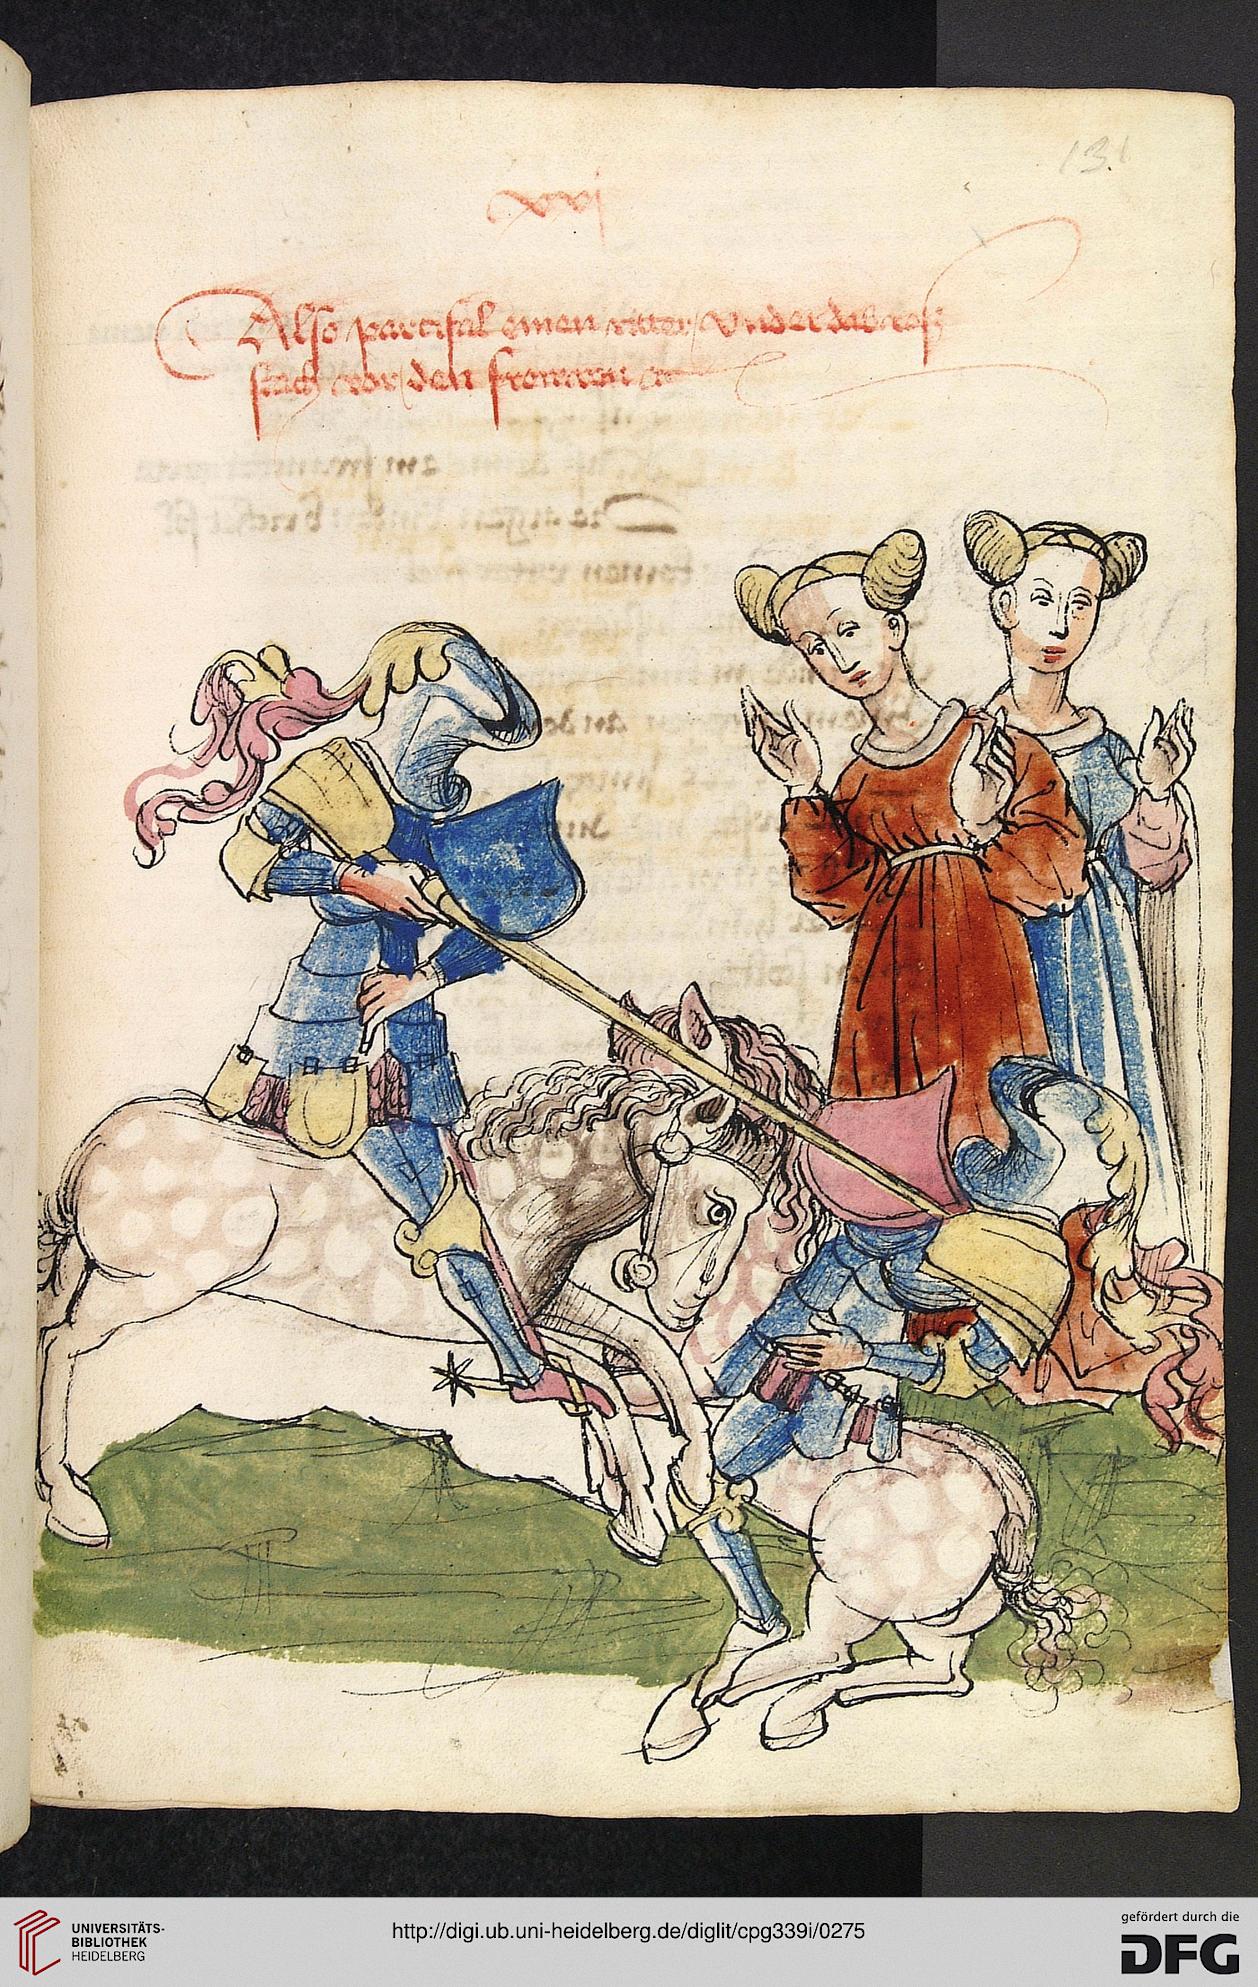 131
xvi
Also partzifal einen ritter under das ross
stach vor den frowen
UNIVERSITÄTS-
BIBLIOTHEK
HEIDELBERG
http://digi.ub.uni-heidelberg.de/diglit/cpg339i/0275
gefördert durch die
DFG